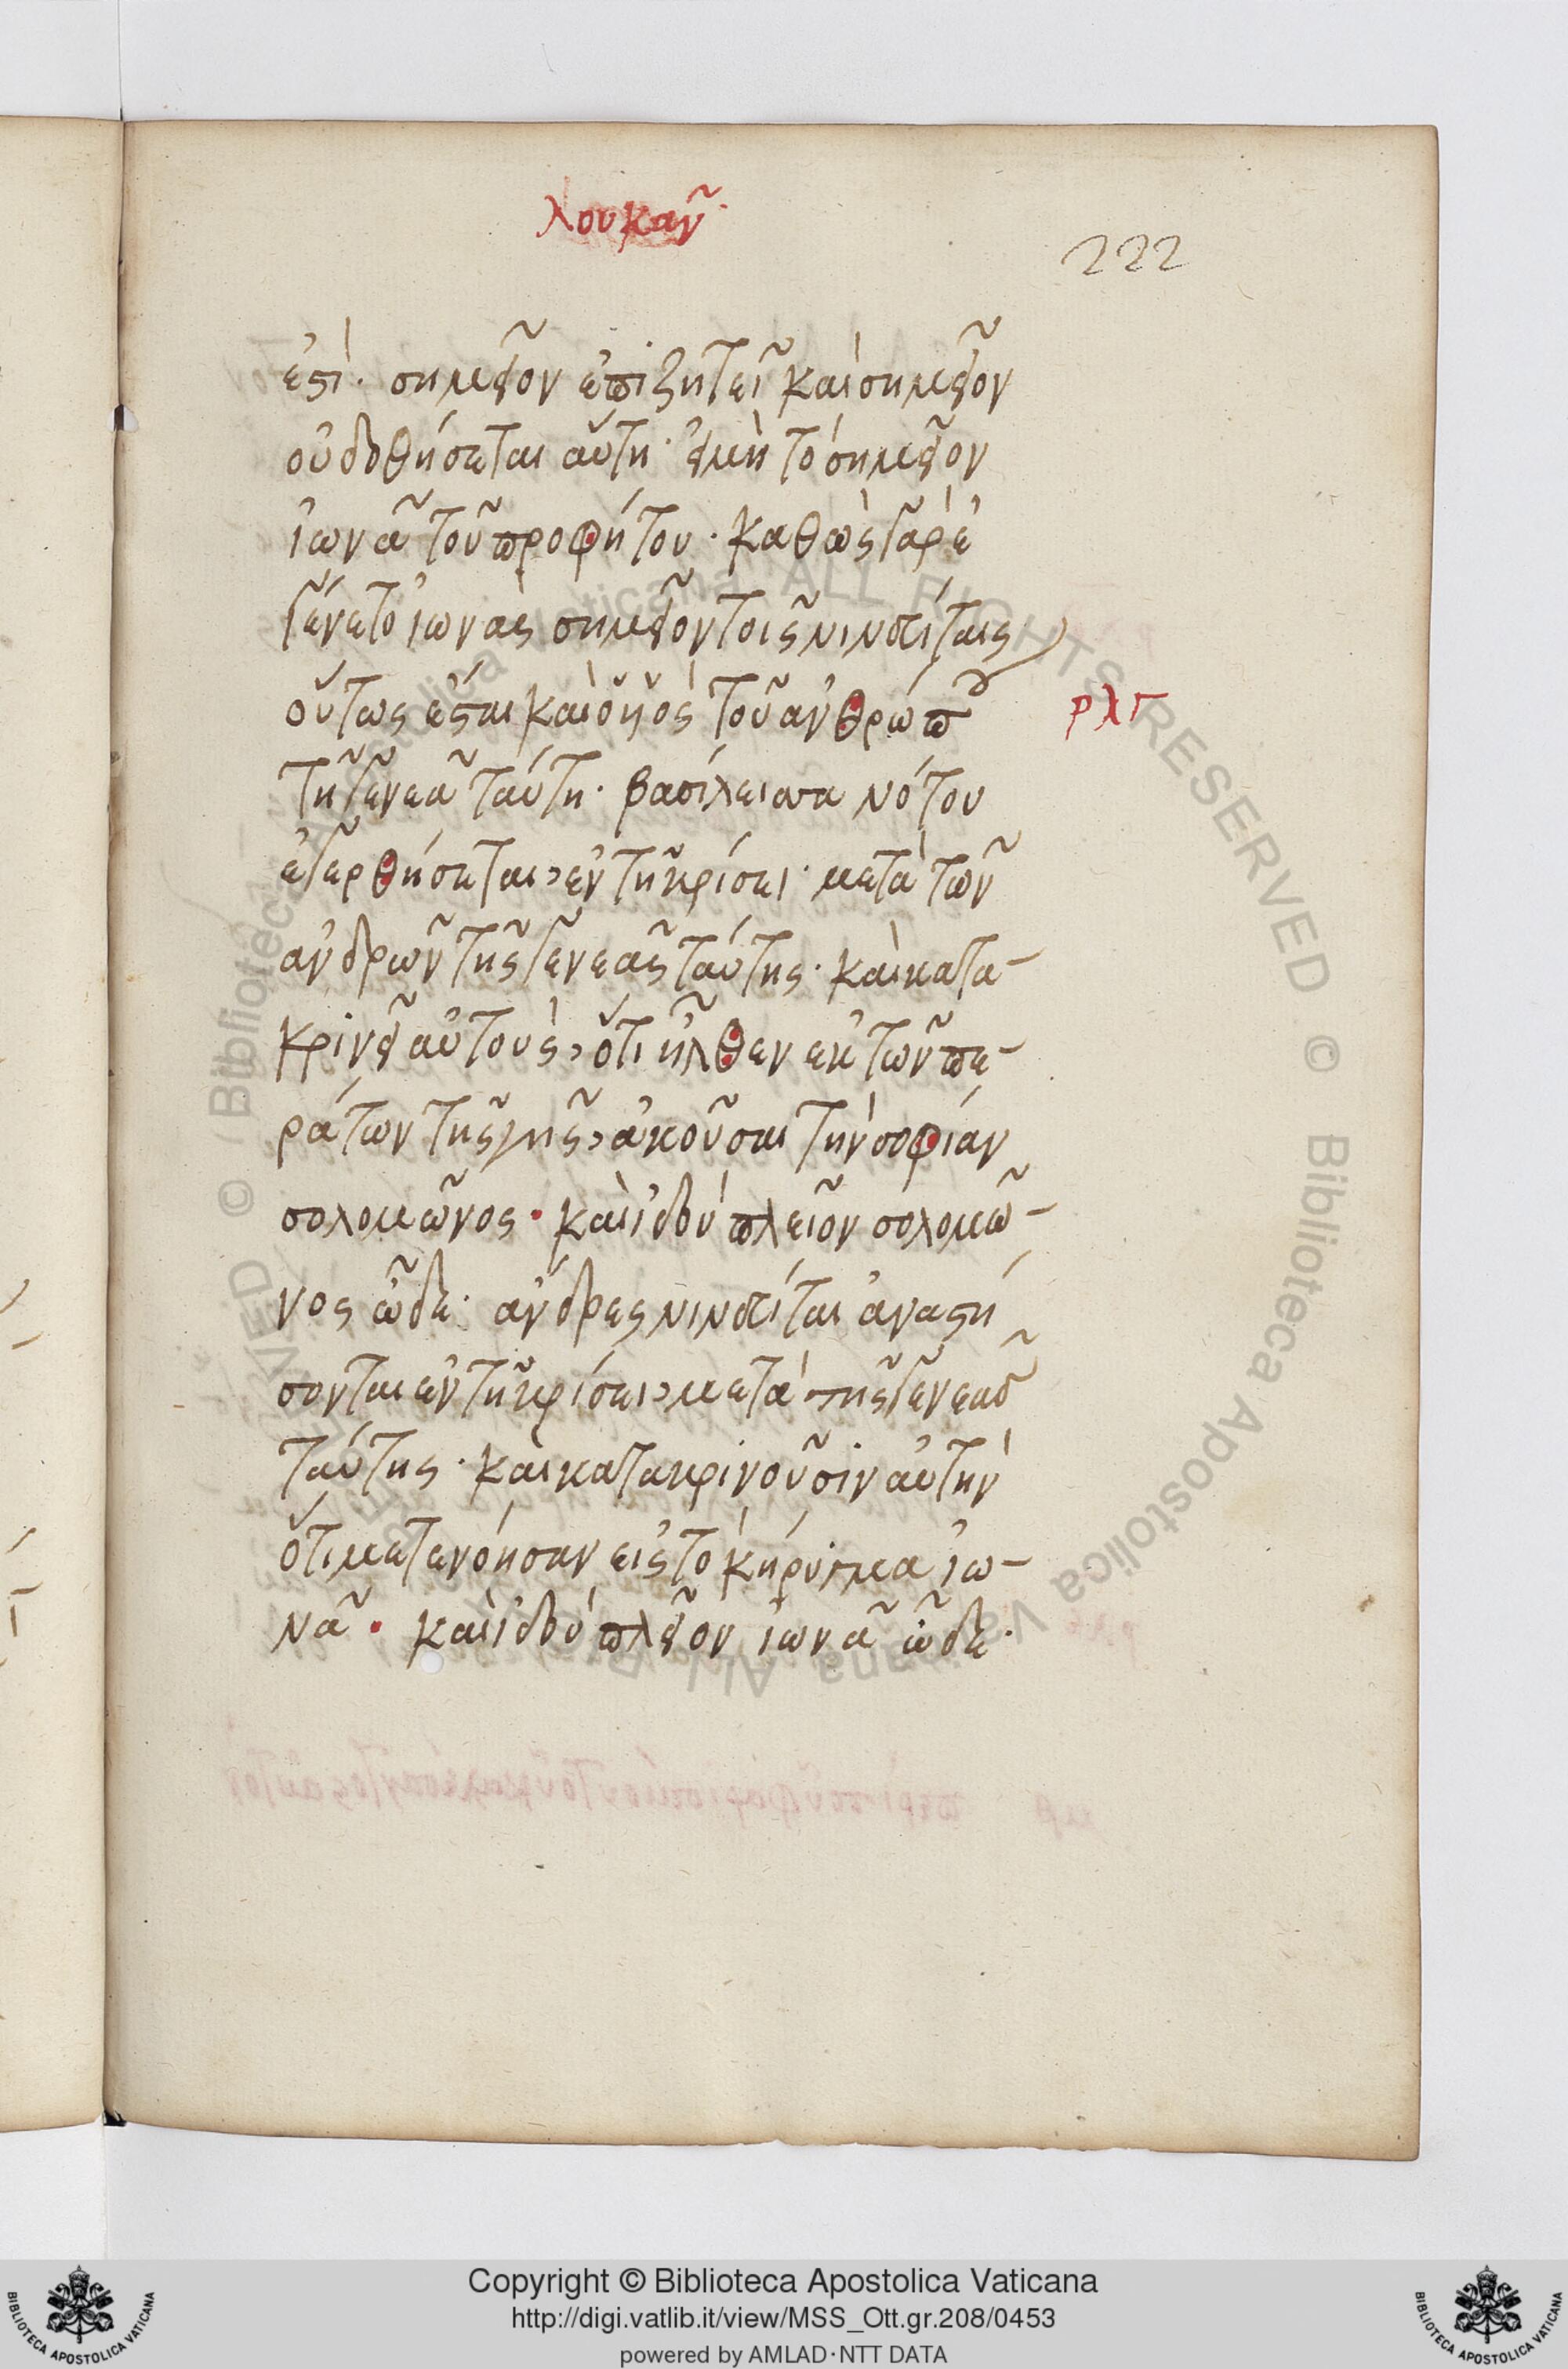 λουκᾶν
222
ἐστὶ· σημεῖον ἐπιζητεῖ καὶ σημεῖον
οὐ δοθήσεται αὕτη· εἰ μὴ τὸ σημεῖον
ἰωνᾶ τοῦ προφήτου· καθὼς γὰρ ἐ
γένετο ἰωνὰς σημεῖον τοῖς νινευίταις
οὕτως ἔσται καὶ ὁ υἱὸς τοῦ ἀνθρώπου
ρλγ
τῆ γενεᾶ ταύτη· βασίλεισσα νότου
ἐγερθήσεται, ἐν τῆ κρίσει· μετὰ τῶν
ἀνδρῶν τῆς γενεᾶς ταύτης· καὶ κατα-
κρινεῖ αὐτοὺς, ὅτι ἦλθεν ἐκ τῶν πε-
ράτων τῆς γῆς, ἀκοῦσαι τὴν σοφίαν
σολομῶνος· καὶ ἰδοὺ πλεῖον σολομῶ-
νος ὧδε· ἄνδρες νινευίται ἀναστή
σονται ἐν τῆ κρίσει, μετὰ τῆς γενεᾶς
ταύτης· καὶ κατακρινοῦσιν αὐτὴν
ὅτι μετενόησαν εἰς τὸ κήρυγμα ἰω-
νᾶ· καὶ ἰδοὺ πλεῖον ἰωνᾶ ὧδε·
Copyright © Biblioteca Apostolica Vaticana
http://digi.vatlib.it/view/MSS_Ott.gr.208/0453
powered by AMLAD·NTT DATA
BIBLIOTECA APOSTOLICA VATICANA
BIBLIOTECA APOSTOLICA VATICANA